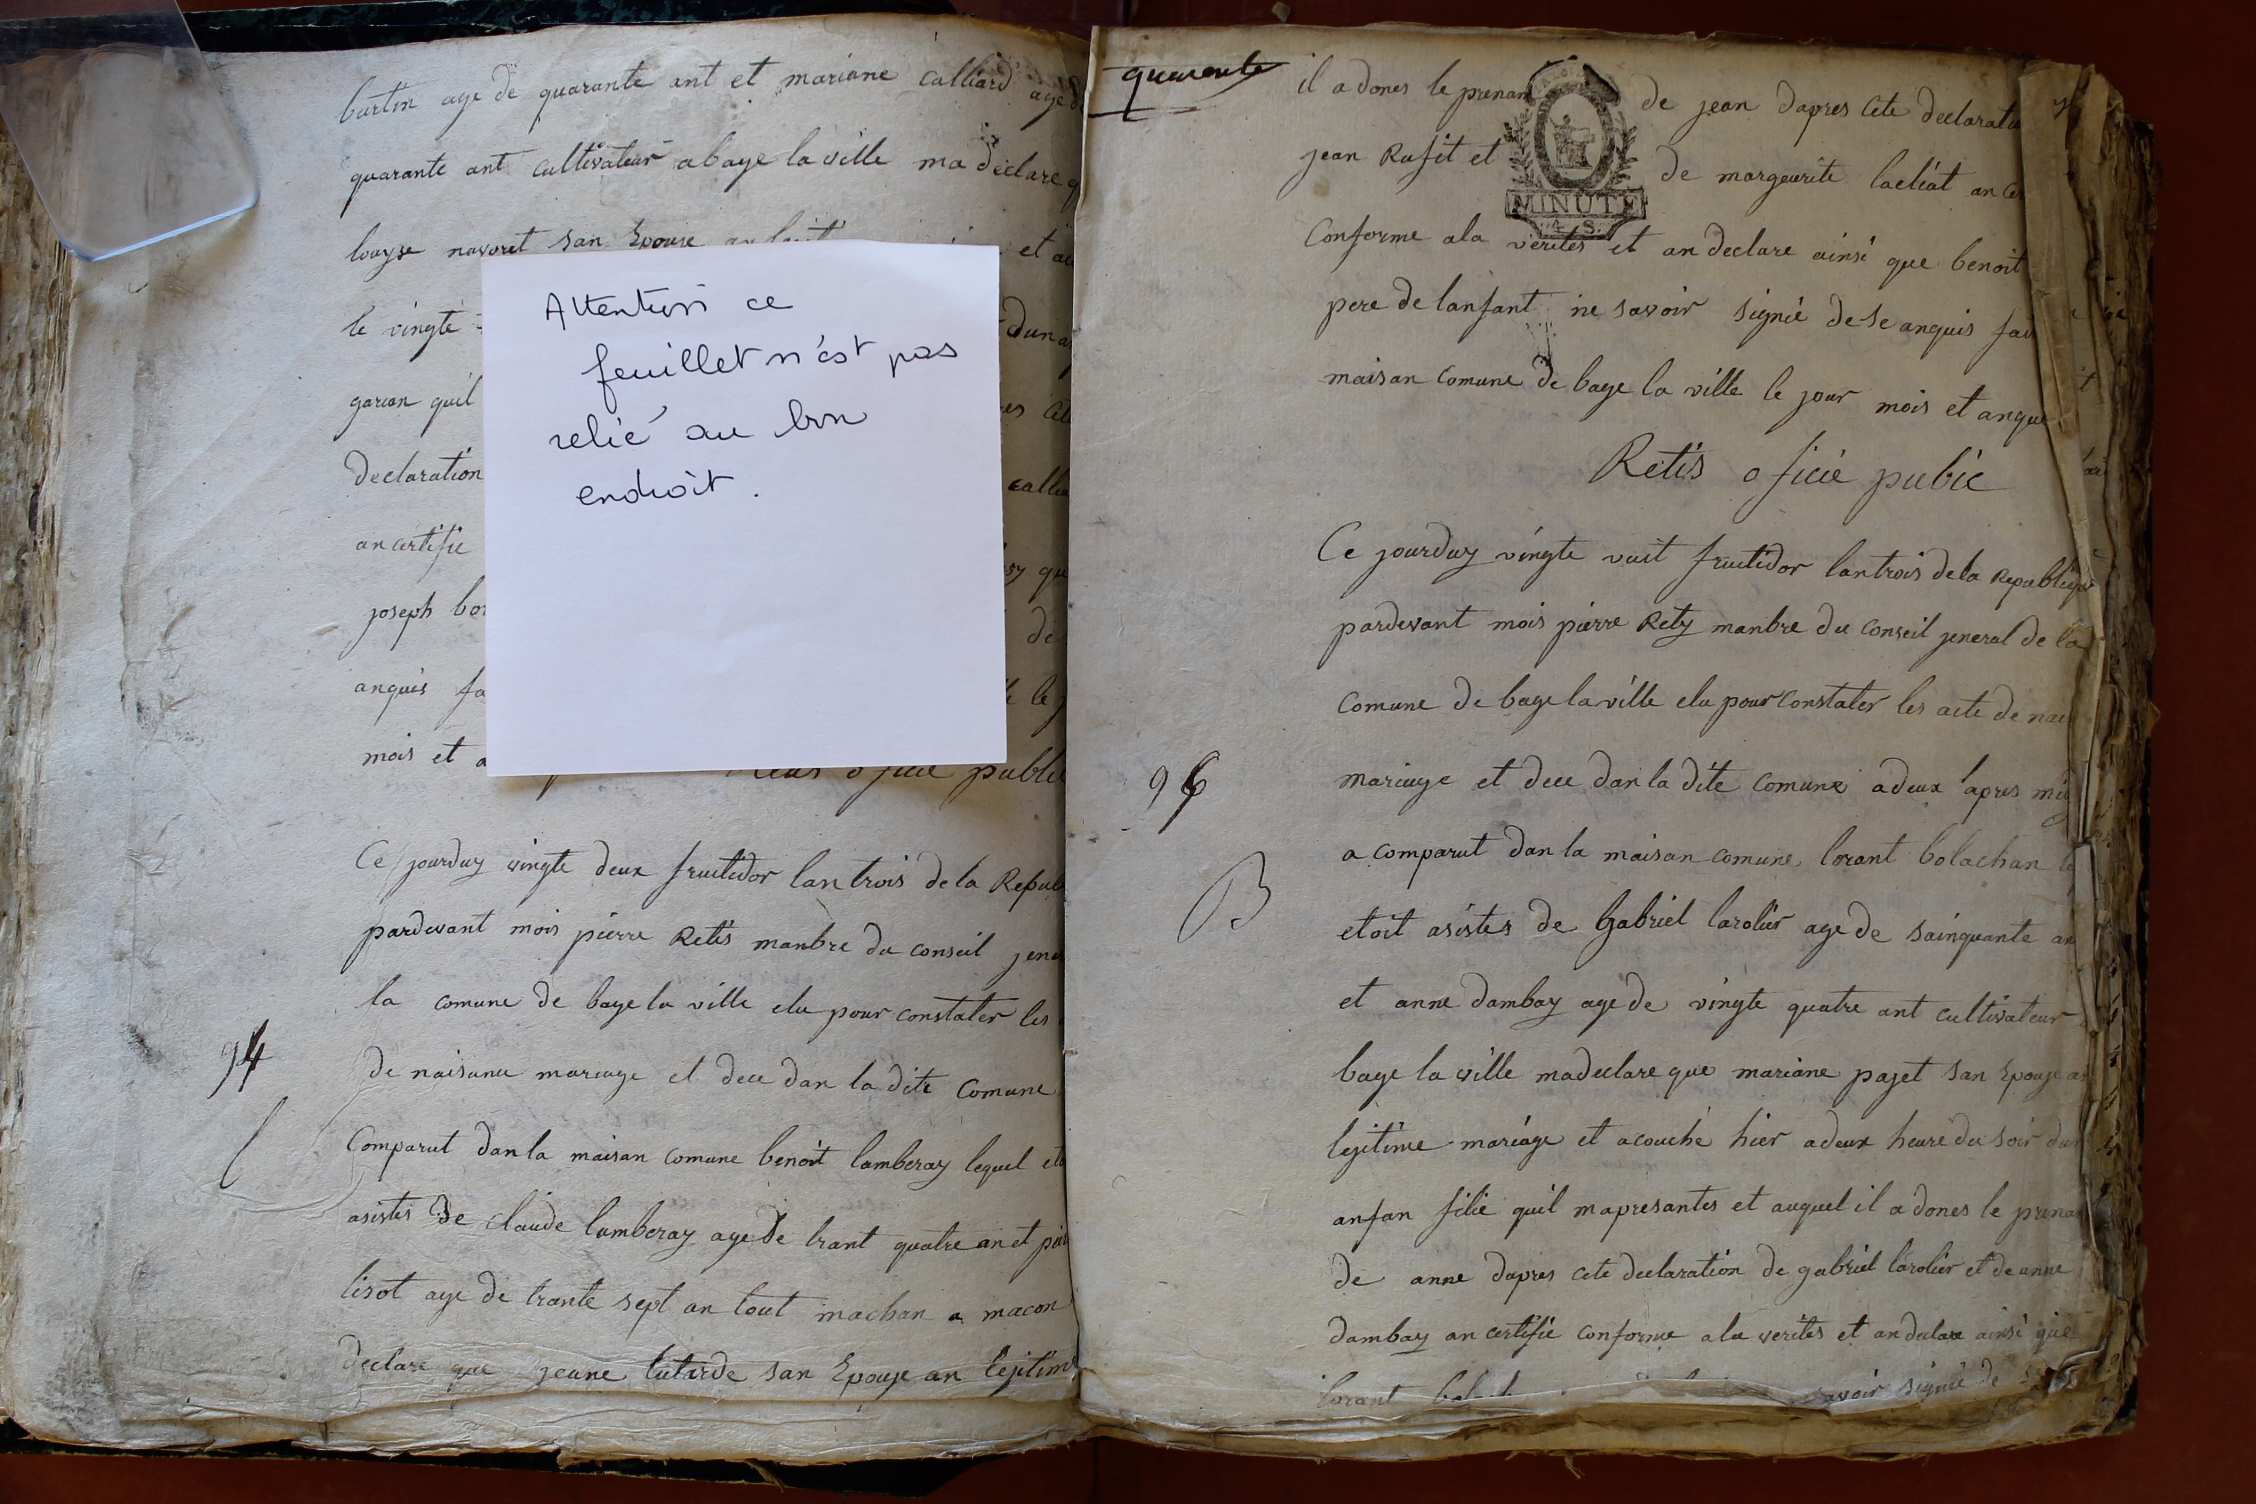 bartin age de quarante ant et mariane Calliard age d
quarante ant cultivateur abage la ville ma declare q
louyse navoret san Epouse et
le vingte dun
garcon quil
declaration
an certifie
joseph
anquis fa le
mois et a oficié public
Attention ce
feuillet n'est pas
relié au bon
endroit.
Ce jourduy vingte deux fruitidor lan trois de la Repub
pardevant mois pierre Retis manbre du conseil jene
la comune de bage la ville elu pour constater les
94
de naisance mariage et dece dan la dite Comune
Comparut dan la maisan comune benoit lamberay lequel eto
asistes de claude lamberay age de trant quatre an et
lisot age de trante sept an tout machan a macon
declare que jeane lutarde san Epouse an lejitim
quarente
il a dones le prenan de jean dapres cete declaratio
MINUTE
jean Rufit et de margeurite lacliat an cer
Conforme ala verites et an declare ainsi que benoit
pere de lanfant ne savoir signié de se anquis fai
maisan comune de bage la ville le jour mois et anque
Retis oficié pubic
Ce jourduy vingte vuit fruitidor lan trois de la Republique
pardevant mois pierre Rety manbre du Conseil jeneral de la
comune de bage la ville elu pour constater les acte de nai
96
mariage et dece dan la dite comune a deux apres mid
a comparut dan la maisan comune lorant bolachan
B
etoit asistes de Gabriel larolier age de sainquante an
et anne dambay age de vingte quatre ant cultivateur
bage la ville ma declare que mariane pajet san Epouse
lejitime mariage et acouché hier a deux heure du soir dun
anfan filie quil mapresantes et auquel il a dones le prenan
de anne dapres cete declaration de gabriel larolier et de anne
dambay an certifié conforme ala verites et an declare ainsi que
lorant savoir signié de